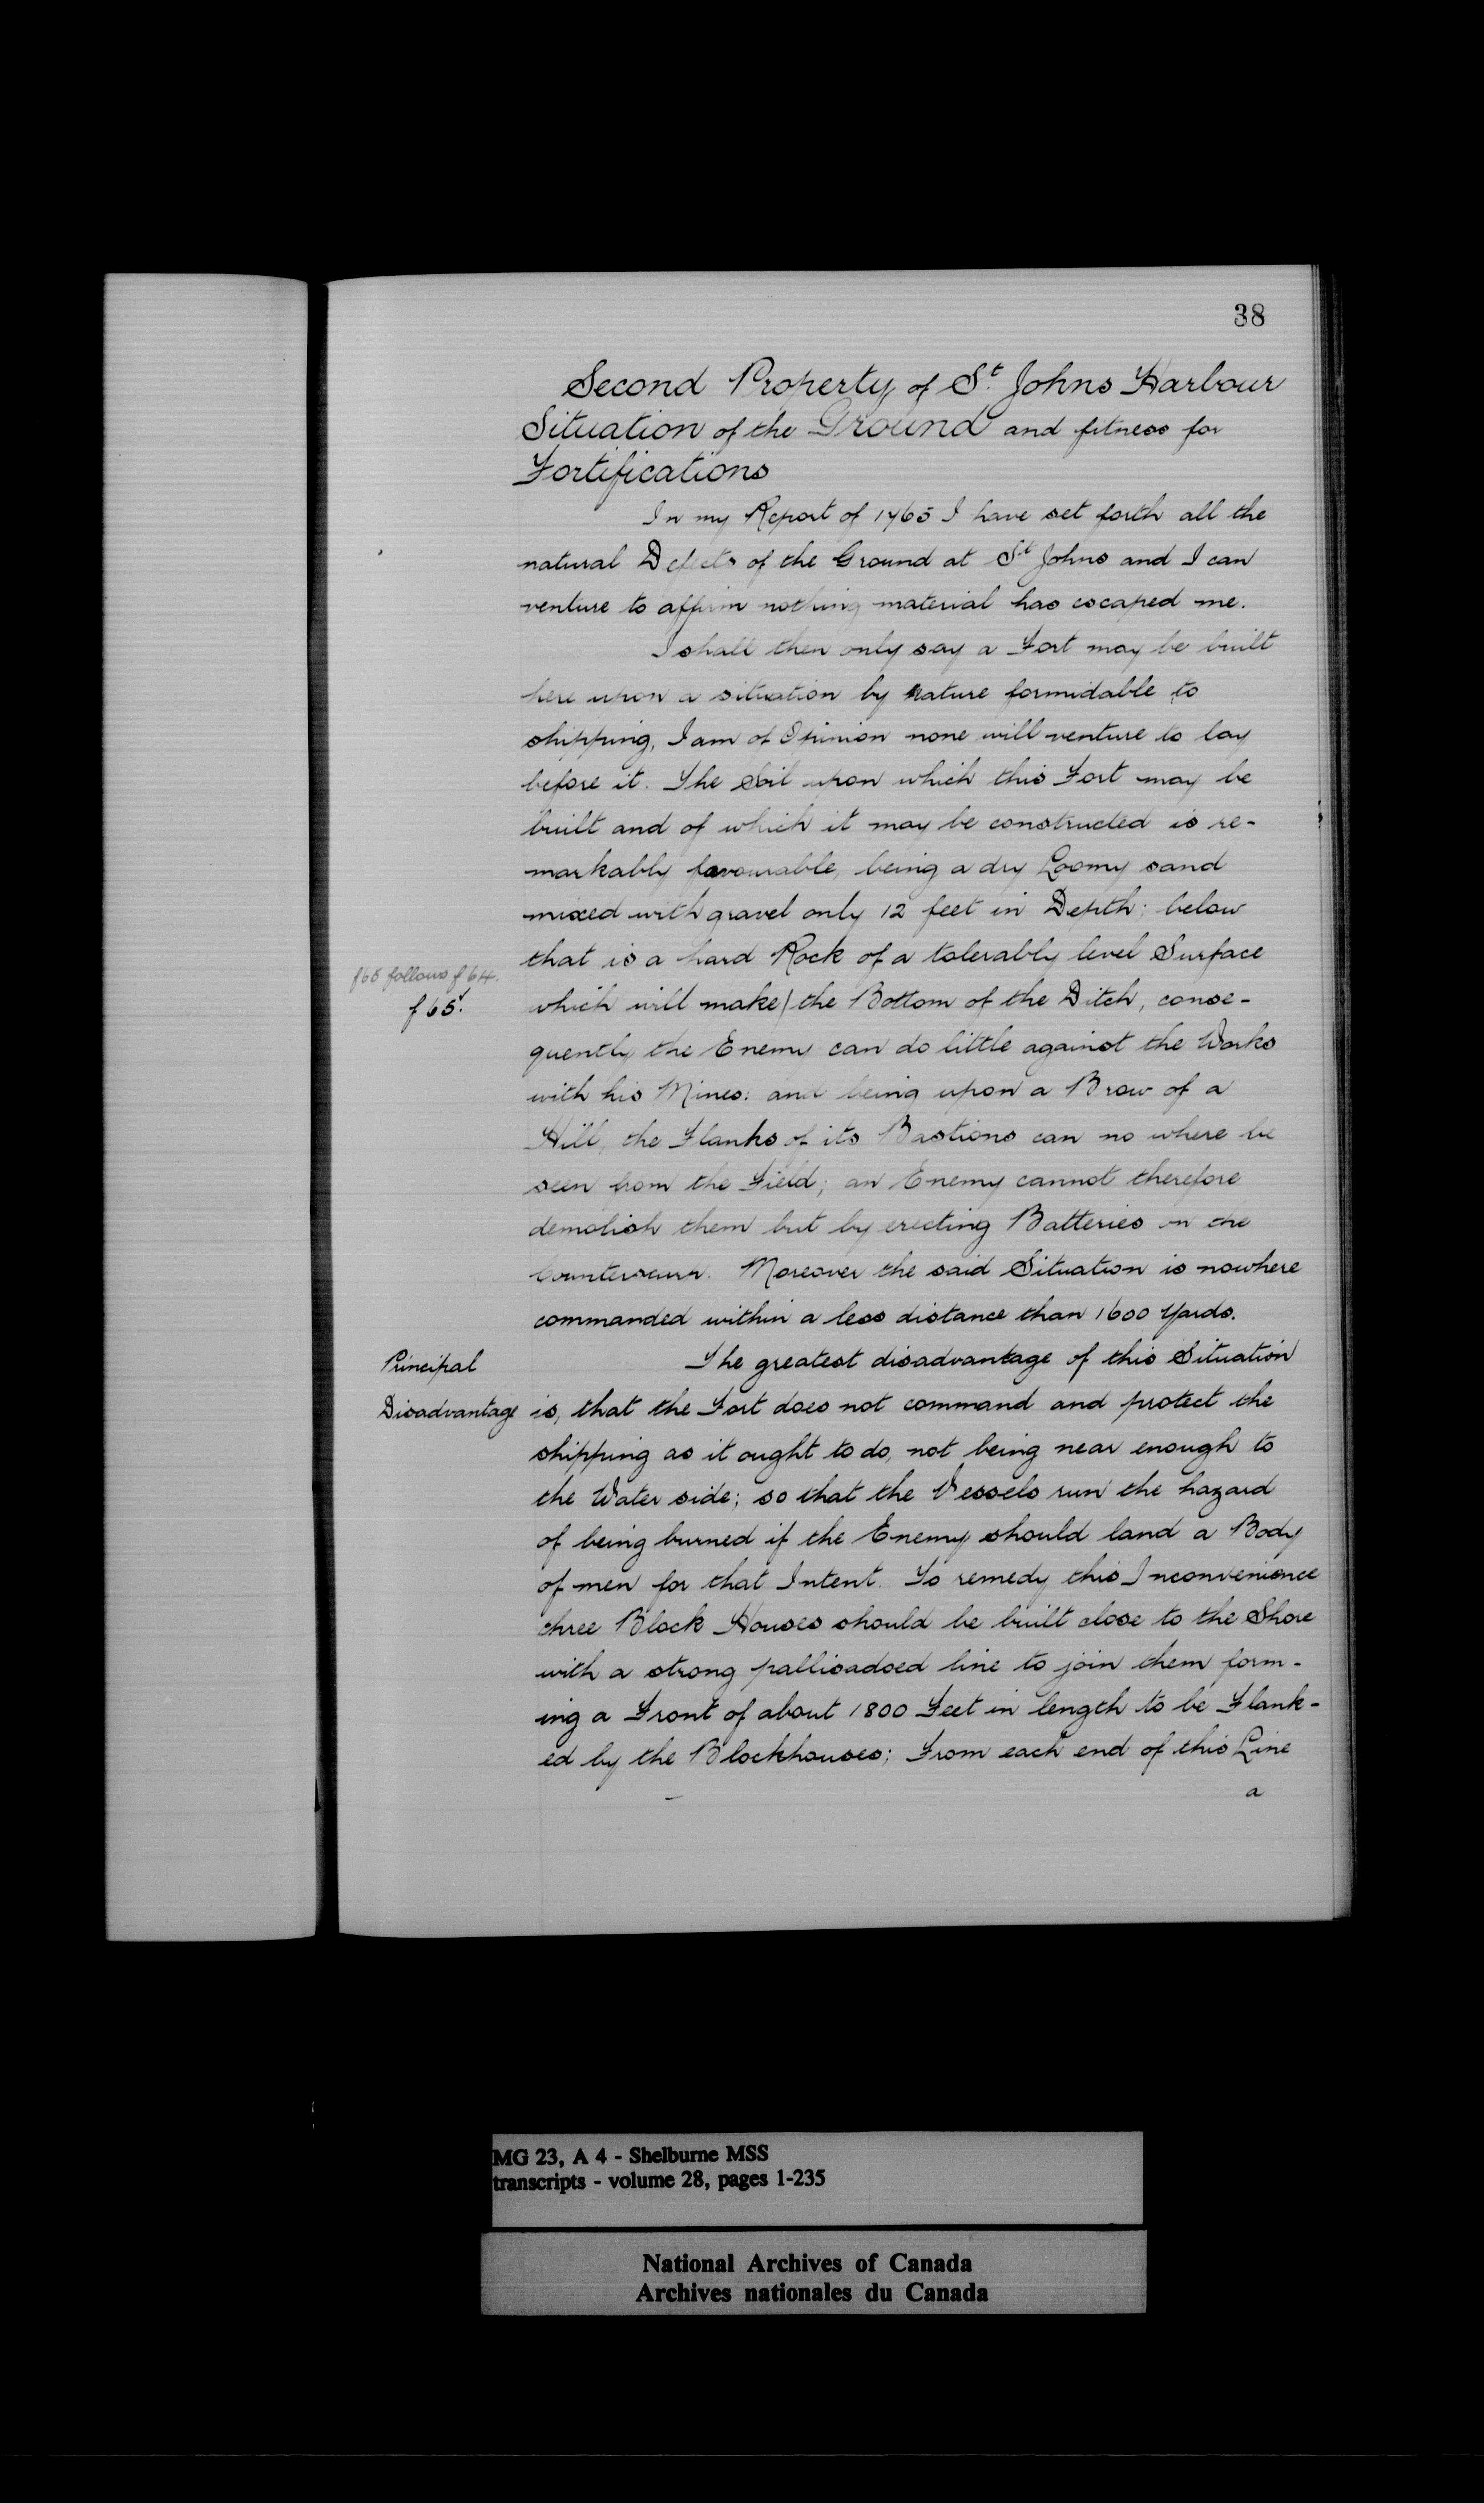 38
Second Property of St. Johns Harbour
Situation of the Ground and fitness for
Fortifications
In my Report of 1765 I have set forth all the
natural Defects of the Ground at St Johns and I can
venture to affirm nothing material has escaped me.
I shall then only say a Fort may be built
here upon a situation by nature formidable to
shipping, I am of Opinion none will venture to lay
before it. The Soil upon which this Fort may be
built and of which it may be constructed is re-
markably favourable, being a dry Loomy sand
mixed with gravel only 12 feet in Depth; below
that is a hard Rock of a tolerably level Surface
f65 follows f64.
f65.
which will make/the Bottom of the Ditch, conse-
quently the Enemy can do little against the Works
with his Mines: and being upon a Brow of a
Hill, the Flanks of its Bastions can no where be
seen from the Field; an Enemy cannot therefore
demolish them but by erecting Batteries on the
Moreover the said Situation is nowhere
commanded within a less distance than 1600 Yards.
Principal
Disadvantage
The greatest disadvantage of this Situation
is, that the Fort does not command and protect the
shipping as it ought to do, not being near enough to
the Water side; so that the Vessels run the hazard
of being burned if the Enemy should land a Body
of men for that Intent. To remedy this Inconvenience
three Block Houses should be built close to the Shore
with a strong pallisadoed line to join them form-
ing a Front of about 1800 Feet in length to be Flank-
ed by the Blockhouses; From each end of this Line
a
MG 23, A 4 - Shelburne MSS
transcripts - volume 28, pages 1-235
National Archives of Canada
Archives nationales du Canada